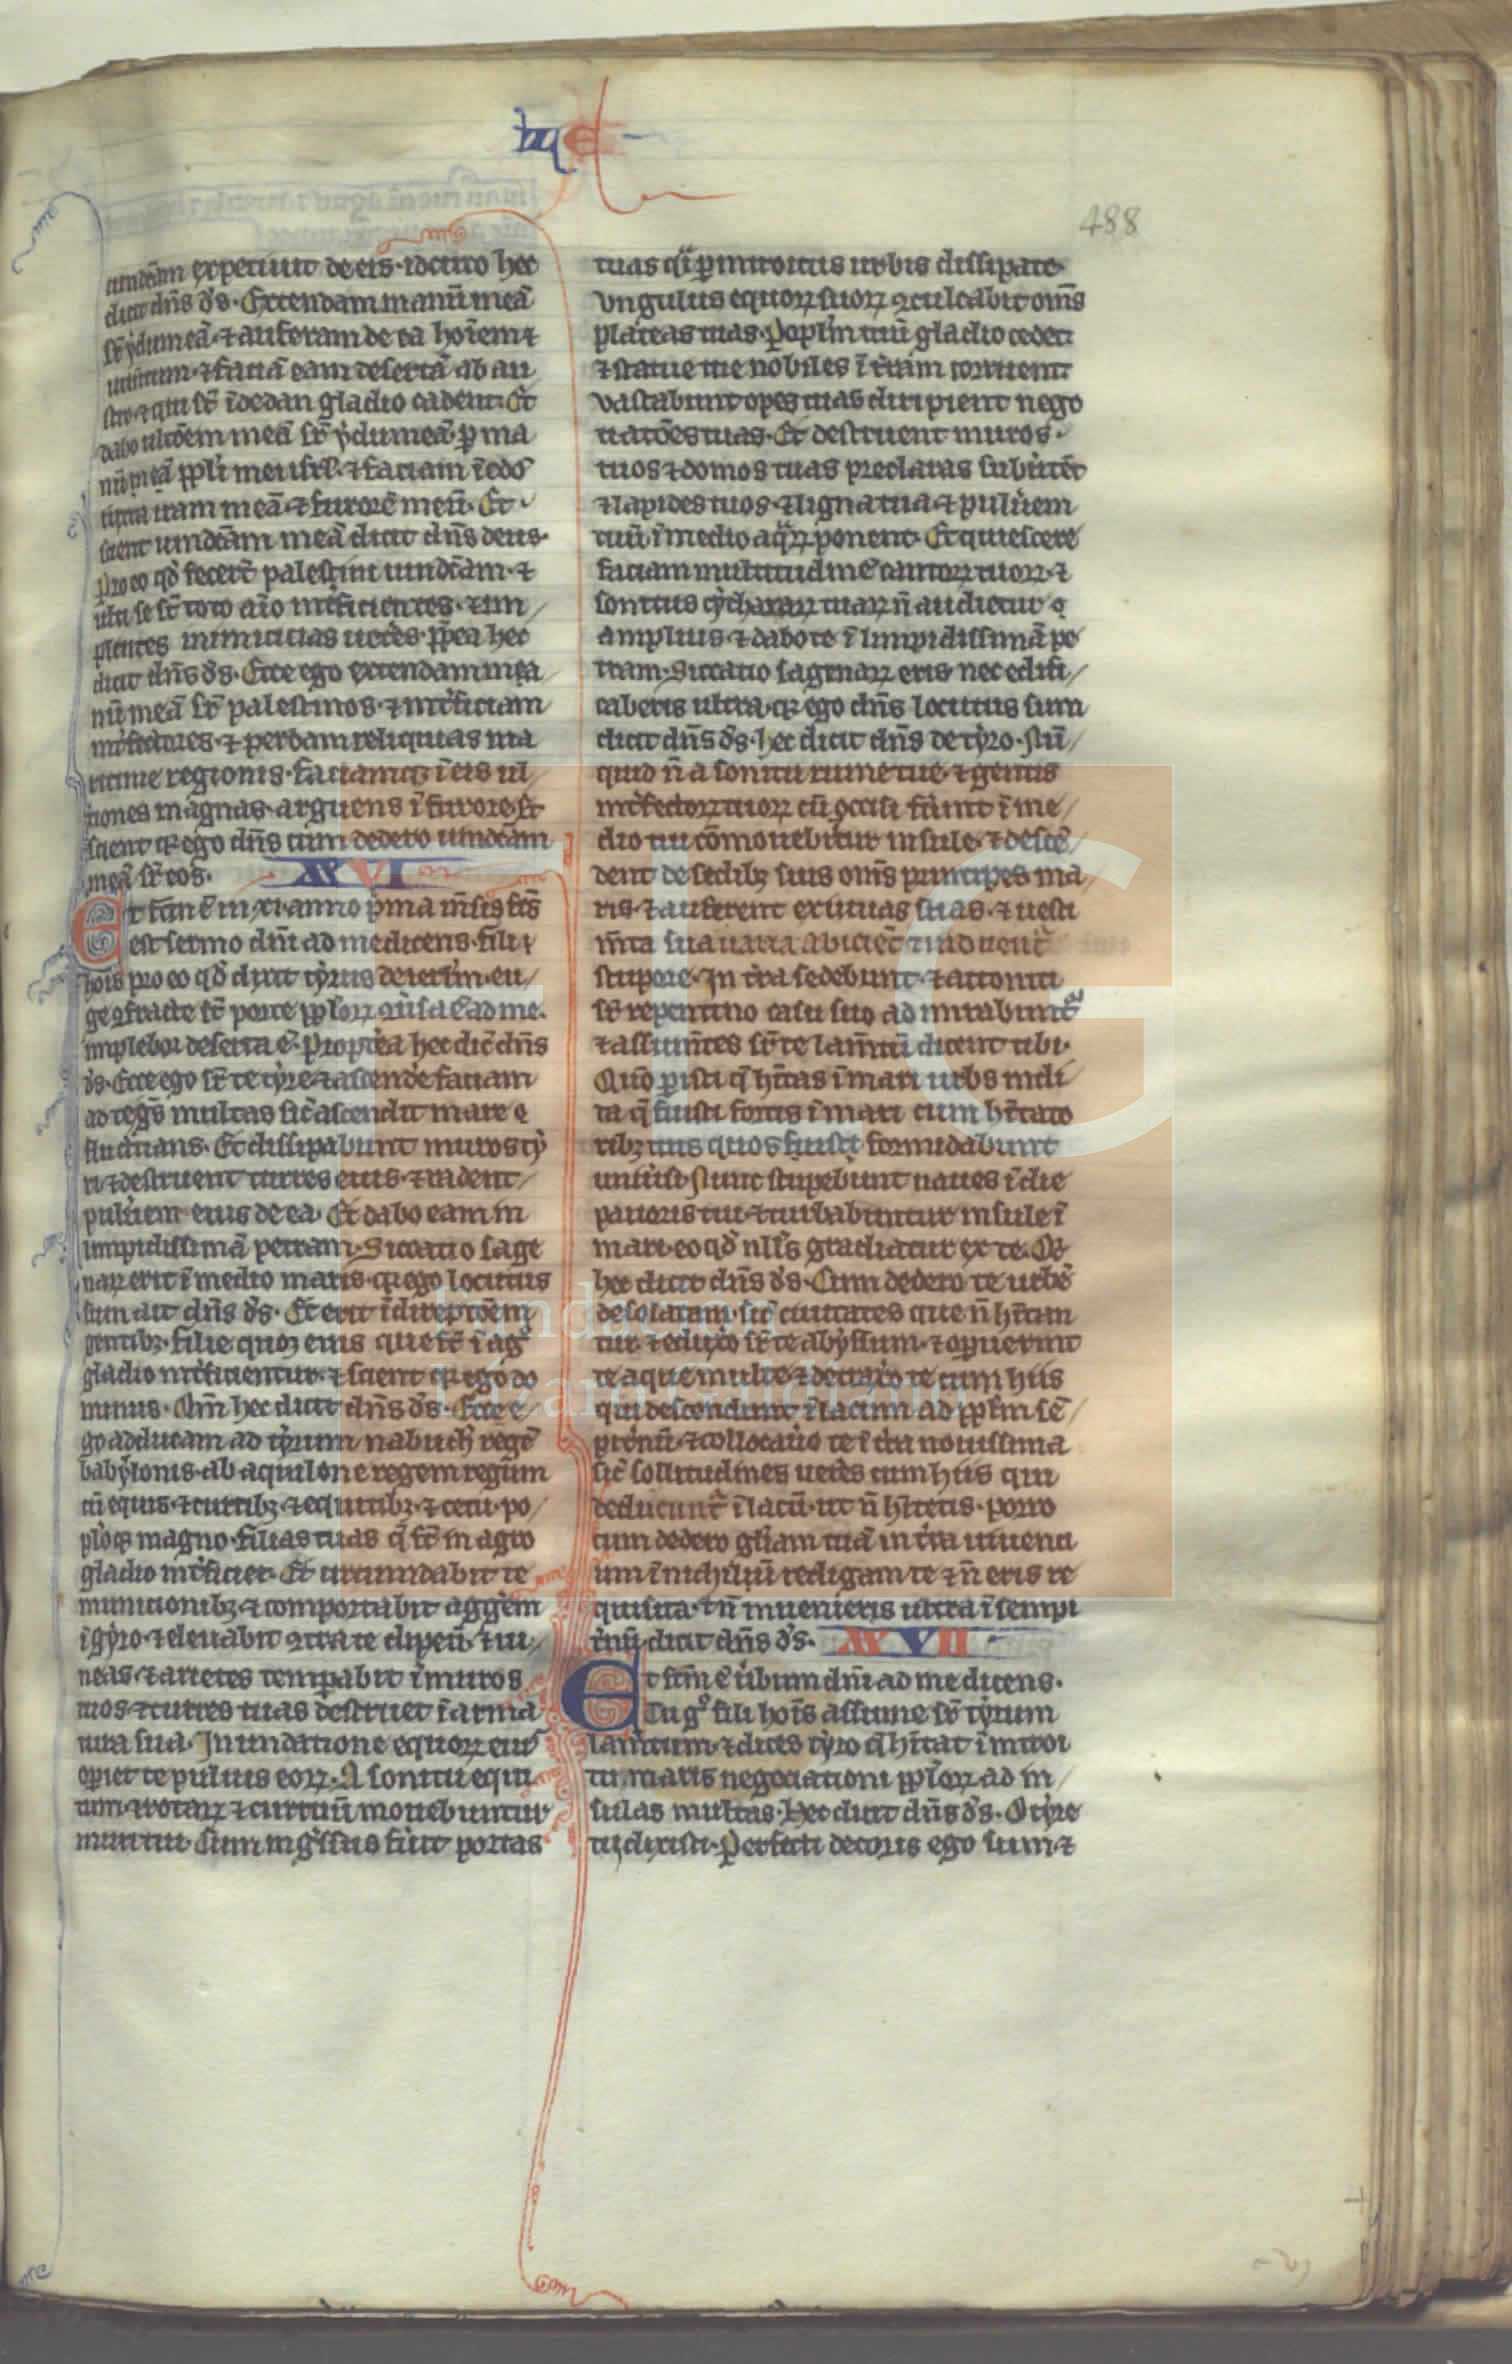 488
uindc̄am expetiuit de eis. idcirco hec
dicit dn̄s d̄s. Extendam manū meā
sr̄ ydumeā. ⁊ auferam de ea hoīem ⁊
iumtum. ⁊ faciā eam desertā ab au
stro. ⁊ qui st̄ ī dedan gladio cadent. Et
dabo ultōem meā sr̄ ydumeā. ꝑ ma
nū meā ppl̄i mei isrl̄. ⁊ faciam ī edō
iuxta iram meā. ⁊ furorē meū. Et
scient uindc̄am meā dicit dn̄s deus.
Pro eo qd̄ fecert̄ palestini uindc̄am. ⁊
ulti se st̄ toto aīo int̄ficientes. ⁊ im
plentes inimicicias uet̄es. ꝓpt̄ea hec
dicit dn̄s d̄s. Ecce ego extendam ma
nū meā sr̄ palestinos. ⁊ int̄ficiam
int̄fectores. ⁊ perdam reliquias ma
ritime regionis. faciamqꝫ ī eis ul
tiones magnas. arguens ī furore. Et
scient qꝛ ego dn̄s cum dedero uindc̄am
meā sr̄ eos. XXVI
Et fcm̄ ē in xi anno p̄ma mn̄sis fcs̄
est sermo dn̄i ad me dicens. fili
hoīs pro eo qd̄ dixit tyrus de ierl̄m. eu
ge ꝯfracte st̄ porte ppl̄oꝝ ꝯuersa ē ad me.
implebor deserta ē. Propt̄ea hec dic̄ dn̄s
d̄s. Ecce ego sr̄ te tyre. ⁊ ascende faciam
ad te gn̄s multas sic̄ ascendit mare
fluctuans. Et dissipabunt muros ty
ri. ⁊ destruent turres eius. ⁊ radent
pulūem eius de ea. Et dabo eam in
limpidissimā petram. Siccatio sage
naꝝ erit ī medio maris. qꝛ ego locutus
sum ait dn̄s d̄s. Et erit ī direptōem
gentibꝫ. filie quoqꝫ eius que st̄ ī agro
gladio int̄ficientur. ⁊ scient qꝛ ego do
minus. Qm̄ hec dicit dn̄s d̄s. Ecce e
go adducam ad tyrum nabuch̄ regē
babylonis. ab aquilone regem regum
cū equis. ⁊ curribꝫ. ⁊ equitibꝫ. ⁊ cetu. po
pl̄oqꝫ magno. filias tuas q̄ st̄ in agro
gladio int̄ficiet. Et circumdabit te
munitionibꝫ. ⁊ comportabit aggēm
ī gyro. ⁊ eleuabit ꝯtra te clipeū. ⁊ ui
neas. ⁊ arietes tempabit ī muros
tuos. ⁊ turres tuas destruet ī arma
tura sua. Inundatione equoꝝ eius
opiet te puluis eoꝝ. A sonitu equi
tum. ⁊ rotaꝝ ⁊ curruū mouebuntur
muri tui. Cum ing̓ssus fūit portas
tuas q̓i ꝑ introitus urbis dissipate
vngulis equoꝝ suoꝝ ꝯculcabit om̄s
plateas tuas. Popl̄m tuū gladio cedet
⁊ statue tue nobiles ī tr̄am corruent.
vastabunt opes tuas diripient nego
tiatōes tuas. Et destruent muros
tuos ⁊ domos tuas preclaras subūtet̄
⁊ lapides tuos. ⁊ ligna tua. ⁊ pulūem
tuū ī medio aq̓ꝝ ponent. Et quiescere
faciam multitudinē cantoꝝ tuoꝝ. ⁊
sonitus cytharaꝝ tuaꝝ n̄ audietur
amplius. ⁊ dabo te ī limpidissimā pe
tram. Siccatio saginaꝝ eris nec edifi
caberis ultra. qꝛ ego dn̄s locutus sum
dicit dn̄s d̄s. hec dicit dn̄s de tyro. Nū
quid n̄ a sonitu ruine tue. ⁊ gemitus
int̄fectoꝝ tuoꝝ cū occisi fūint ī me
dio tui cōmouebūtur insule. ⁊ descē
dent de sedibꝫ suis om̄s principes ma
ris. ⁊ auferent exuuias suas. ⁊ uesti
mn̄ta sua uaria abicient̄ ⁊ induentur
stupore. In tr̄a sedebunt. ⁊ attoniti
sr̄ repentino casu tuo admirabunt̄
⁊ assumn̄tes sr̄ te lamn̄tū dicent tibi.
Quō ꝑisti q̄ hītas ī mari urbs incli
ta q̄ fuisti fortis ī mari cum hītato
ribꝫ tuis quos fuisti formidabunt
uniūsi. Nunc stupebunt naues ī die
pauoris tui. ⁊ turbabuntur insule ī
mari. eo qd̄ nll̄s gradiatur ex te. Qꝛ
hec dicit dn̄s d̄s. Cum dedero te urbē
desolatam. sic̄ ciuitates que n̄ hītan
tur. ⁊ eduxo sr̄ te abyssum. ⁊ opuerint
te aque multe ⁊ detraxo te cum hiis
qui descendunt ī lacum ad ppl̄m sē
piternū. ⁊ collocauo te ī tr̄a nouissima
sic̄ sollitudines uet̄es cum hiis qui
deducunt̄ ī lacū. ut n̄ hīteris. porro
cum dedero glīam tuā in tr̄a uiuenti
um ī nichilū redigam te ⁊ n̄ eris re
quisita. ⁊ n̄ inuenieris ultra ī sempi
t̄nū dicit dn̄s d̄s. XXVII
Et fcm̄ ē ūbum dn̄i ad me dicens.
Tu g̊ fili hoīs assume sr̄ tyrum
lamn̄tum. ⁊ dices tyro q̄ hītat ī introi
tu maris negociationi ppl̄oꝝ ad in
sulas multas. Hec dicit dn̄s d̄s. O tyre
tu dixisti. Perfecti decoris ego sum. ⁊